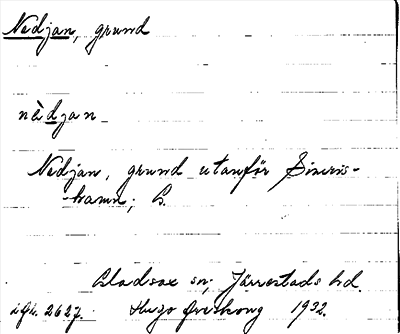 Nedjan, grund
nèdjan
Nedjan, grund utanför Simris-
hamn;
Gladsax sn; Järrestads hd.
2627. Hugo Areskoug 1932.